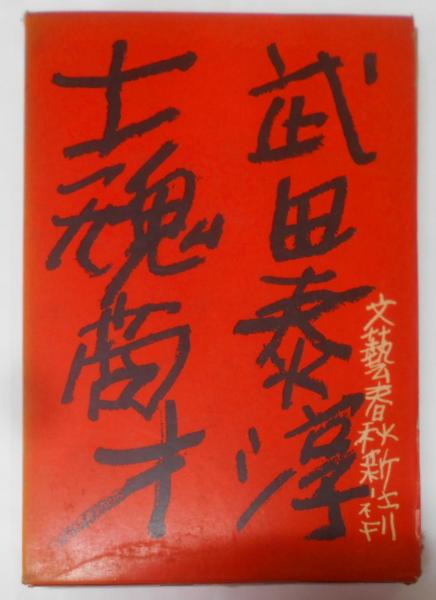 文藝春秋新社刊
武田泰淳
士魂商才